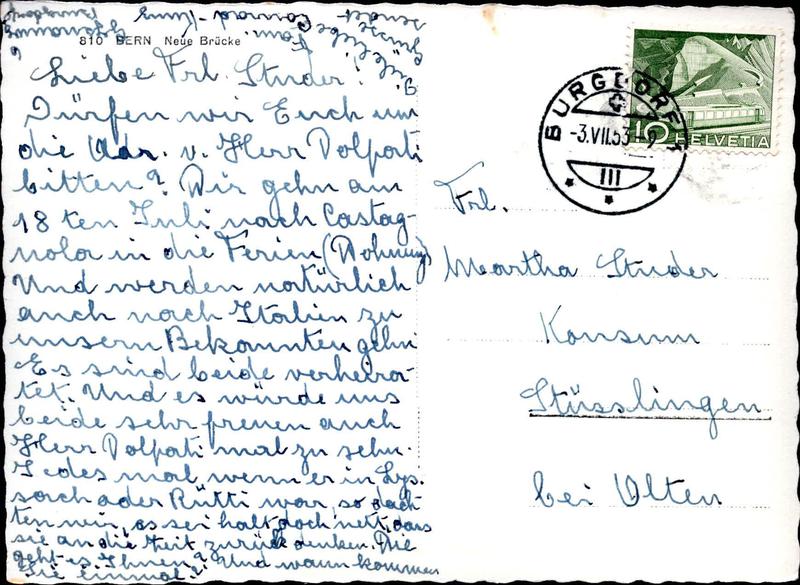 810 BERN Neue Brücke
Liebe Frl. Studer!
Dürfen wir Euch um
die Adr. v. Herr Volpati
bitten? Wir gehn am
18 ten Juli nach Castag-
nola in die Ferien (Wohnung)
Und werden natürlich
auch nach Italien zu
unsern Bekannten gehn
Es sind beide verheira-
tet. Und es würde uns
beide sehr freuen auch
Herr Volpati mal zu sehn.
Jedes mal wenn er in Lys.
sach oder Rütti war, so dach
ten wir, es sei halt doch nett, dass
sie an die Zeit zurück denken. Wie
geht es Ihnen? Und wann kommen
Sie einmal?
Viele liebe
Grüsse
sendet
Fam.
Conrad-Kunz
BURGDORF
-3.VII.53-9
III
10 HELVETIA
Frl.
Martha Studer
Konsum
Stüsslingen
bei Olten